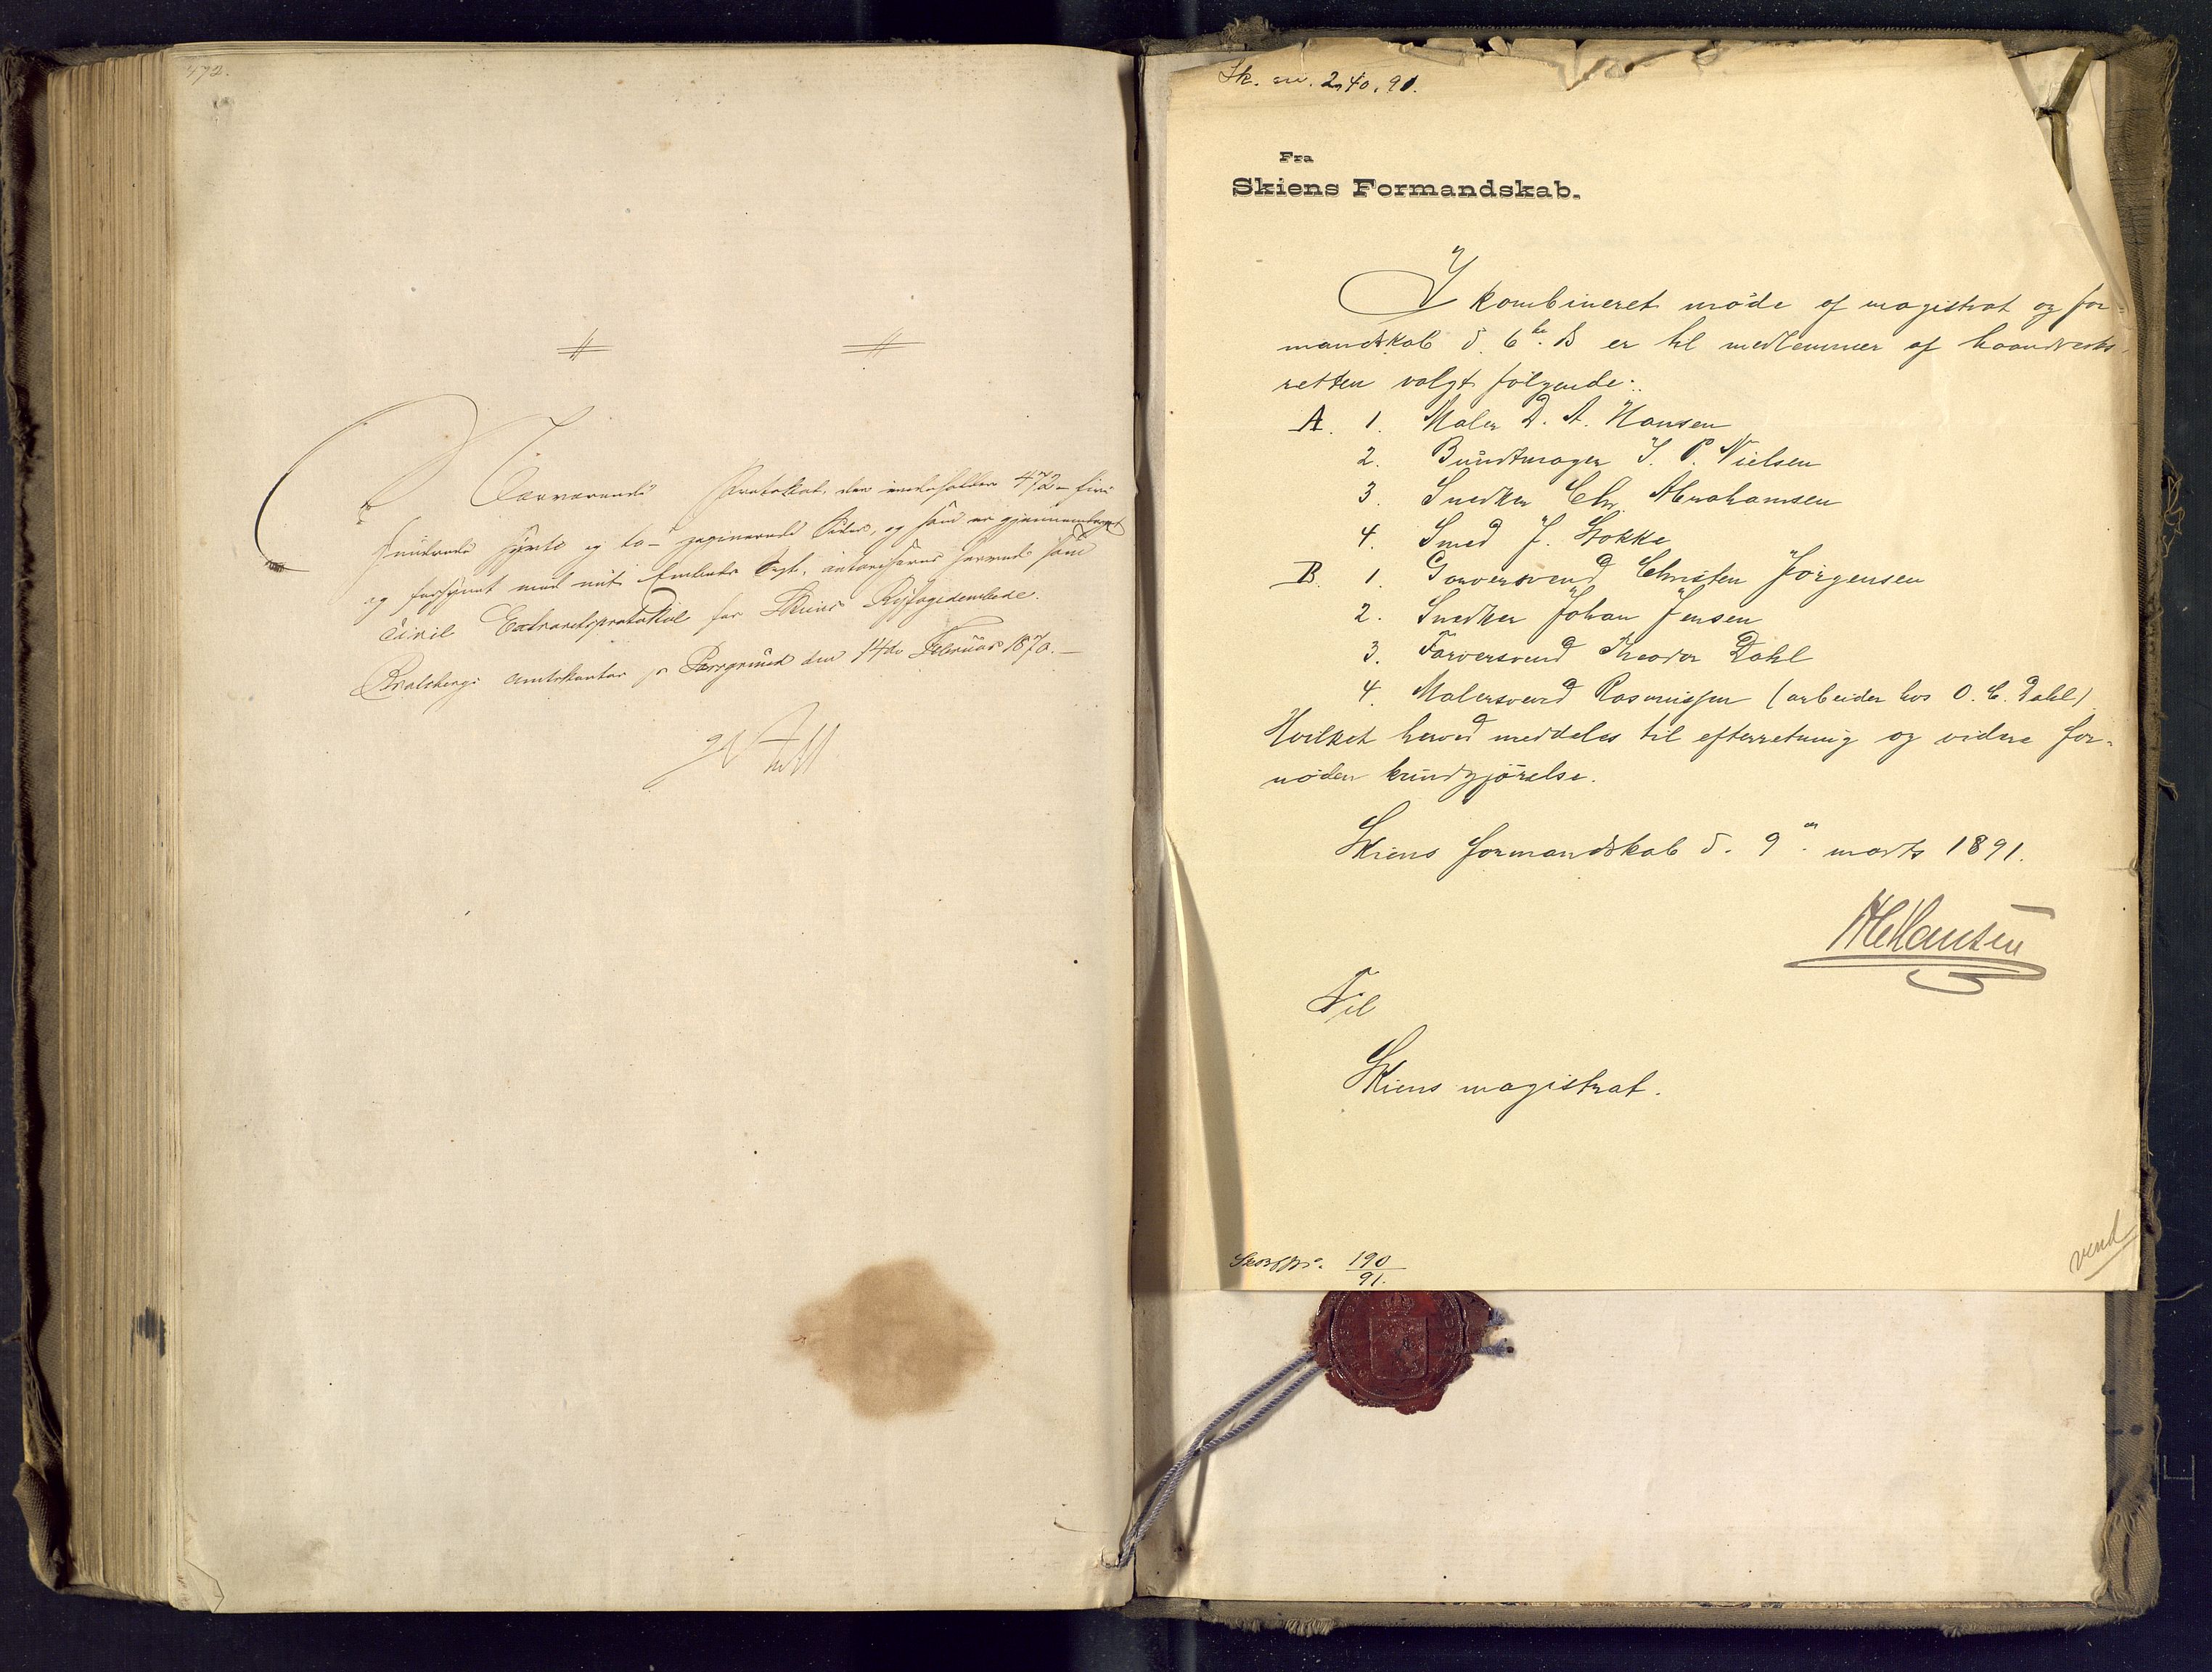 472.
Nærværende Protokol, der indeholder 472 - fire
hundrede sytti og to - paginerede Sider, og som er gjennemdraget
og forsynet med mit Embeds Segl, autoriseres herved som
Civil Extraretsprotokol for Skiens Byfogedembede.
Bratsbergs Amtskontor pr Porsgrund den 14de Februar 1870. —
Sk. m. 240. 91.
Fra
Skiens Formandskab.
I kombineret møde af magistrat og for-
mandskab d. 6te ds er til medlemmer af haandverks-
retten valgt følgende:
A. 1. Maler D. A. Hansen
2. Buntmager J. P. Nielsen
3. Snedker Chr. Abrahamsen
4. Smed J. Stokke
B. 1. Garversvend Christen Jørgensen
2. Snedker Johan Jensen
3. Farversvend Theodor Dahl
4. Malersvend Rasmussen (arbeider hos O. C. Dahl)
Hvilket herved meddeles til efterretning og videre for-
nøden kundgjørelse.
Skiens formandskab d. 9de marts 1891.
Hansen
Til
Skiens magistrat.
190
91.
vend